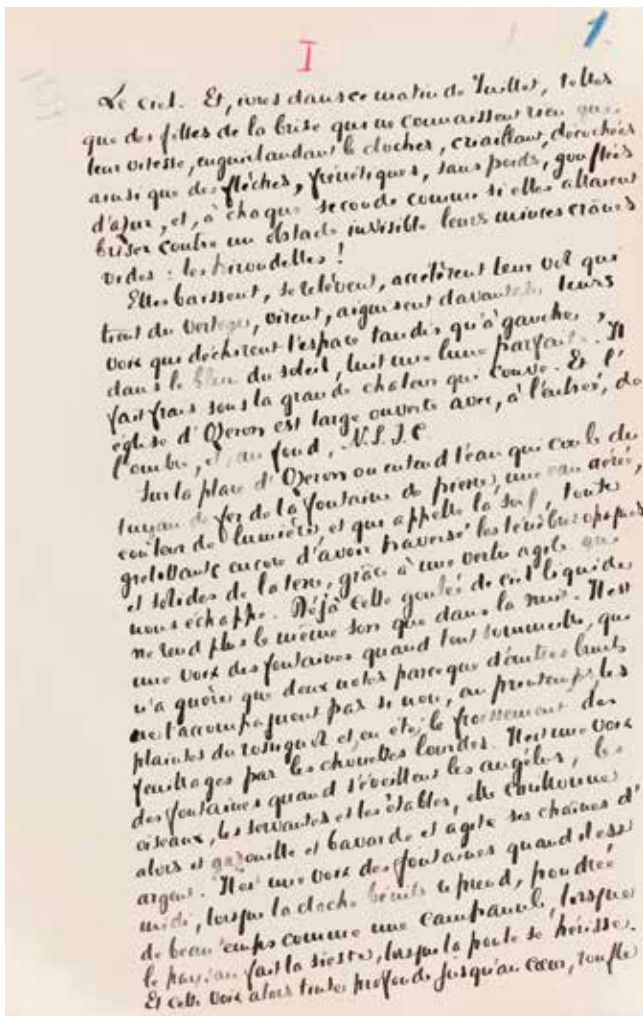 I
1
Le ciel. Et, ivres dans ce matin de Juillet, telles
que des filles de la brise qui ne connaissent rien que
leur vitesse, enguirlandant le clocher, criaillant, décochées
ainsi que des flèches, frénétiques, sans poids, gonflées
d'azur, et, à chaque seconde comme si elles allaient
briser contre un obstacle invisible leurs minces crânes
vides : les hirondelles !
Elles baissent, se relèvent, accélèrent leur vol qui
tient du vertige, virent, aiguisent davantage leurs
voix qui déchirent l'espace tandis qu'à gauche,
dans le bleu du soleil, luit une lune parfaite. Il
fait frais sous la grande chaleur qui couve. Et l'
église d'Ozeron est large ouverte avec, à l'entrée, de
l'ombre, et, au fond, N.S.J.C
Sur la place d'Ozeron on entend l'eau qui coule du
tuyau de fer de la fontaine de pierre, une eau aérée,
couleur de lumière, et qui appelle la soif, toute
grelottante encore d'avoir traversé les ténèbres opaques
et solides de la terre, grâce à une vertu agile qui
nous échappe. Déjà cette goutte de ciel liquide
ne rend plus le même son que dans la nuit. Il est
une voix des fontaines quand tout sommeille, qui
n'a guère que deux notes parce que d'autres bruits
ne l'accompagnent pas sinon, au printemps les
plaintes du rossignol et, en été, le froissement des
feuillages par les chouettes lourdes. Il est une voix
des fontaines quand s'éveillent les angélus, les
oiseaux, les servantes et les étables, elle
alors et gazouille et bavarde et agite ses chaînes d'
argent. Il est une voix des fontaines quand il est
midi, lorsque la cloche bénite reprend, poudrée
de beau temps comme une campanule, lorsque
le paysan fait la sieste, lorsque la poule se hérisse.
Et cette voix alors toute profonde jusqu'au cœur, souffle